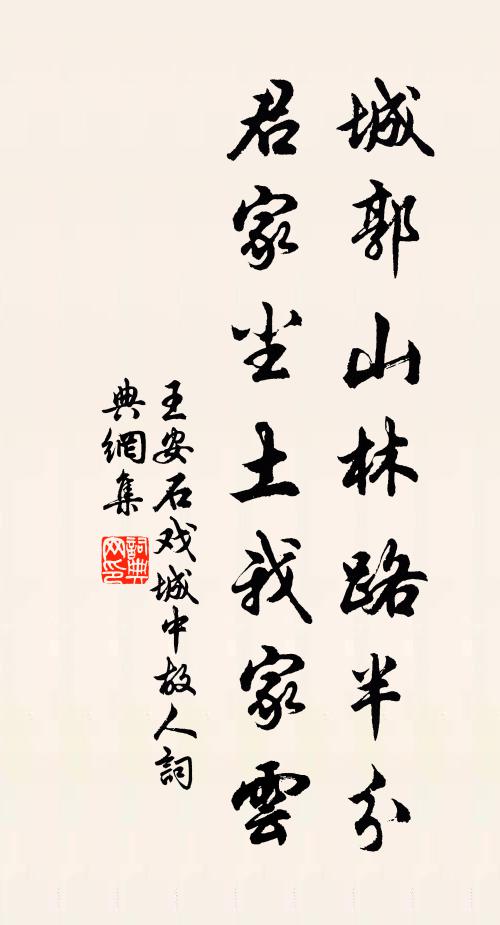 城郭山林路半分
君家尘土我家雲
王安石戏城中故人詞
典網集
詞典网印